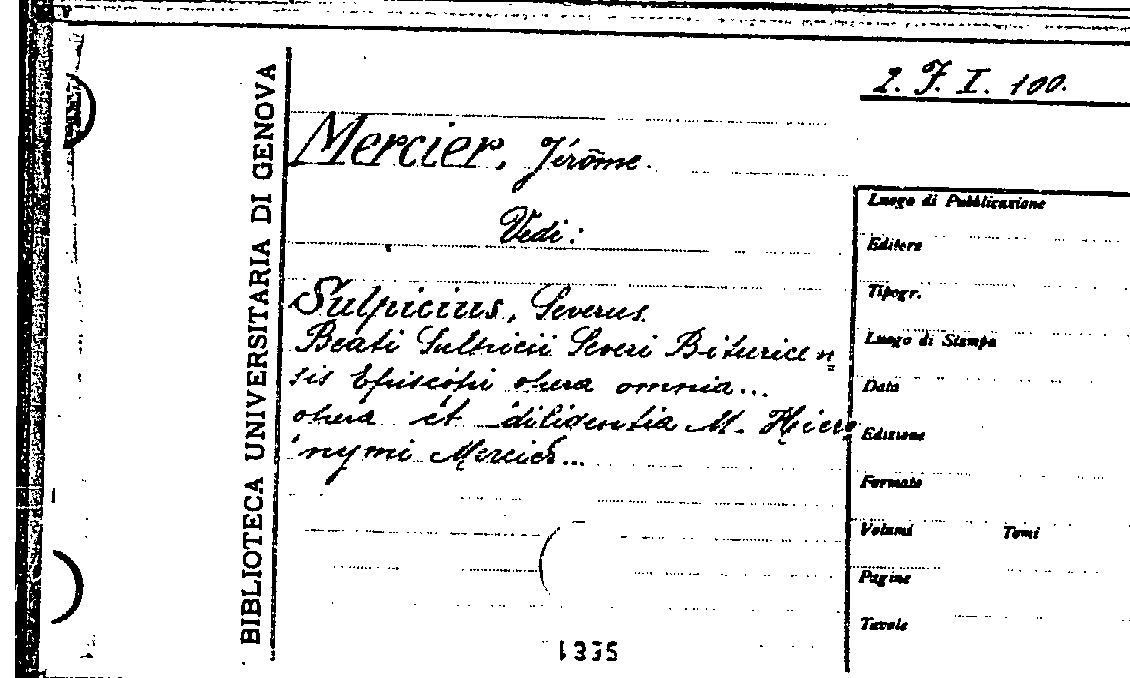 2. F. I. 100.
BIBLIOTECA UNIVERSITARIA DI GENOVA
Mercier, Jérôme.
Vedi:
Sulpicius, Severus.
Beati Sulpicii Severi Bituricen
sis Episcopi opera omnia...
opera et diligentia M. Hiero
nymi Mercier...
Luogo di Pubblicazione
Editore
Tipogr.
Luogo di Stampa
Data
Edizione
Formato
Volumi Tomi
Pagine
Tavole
1335